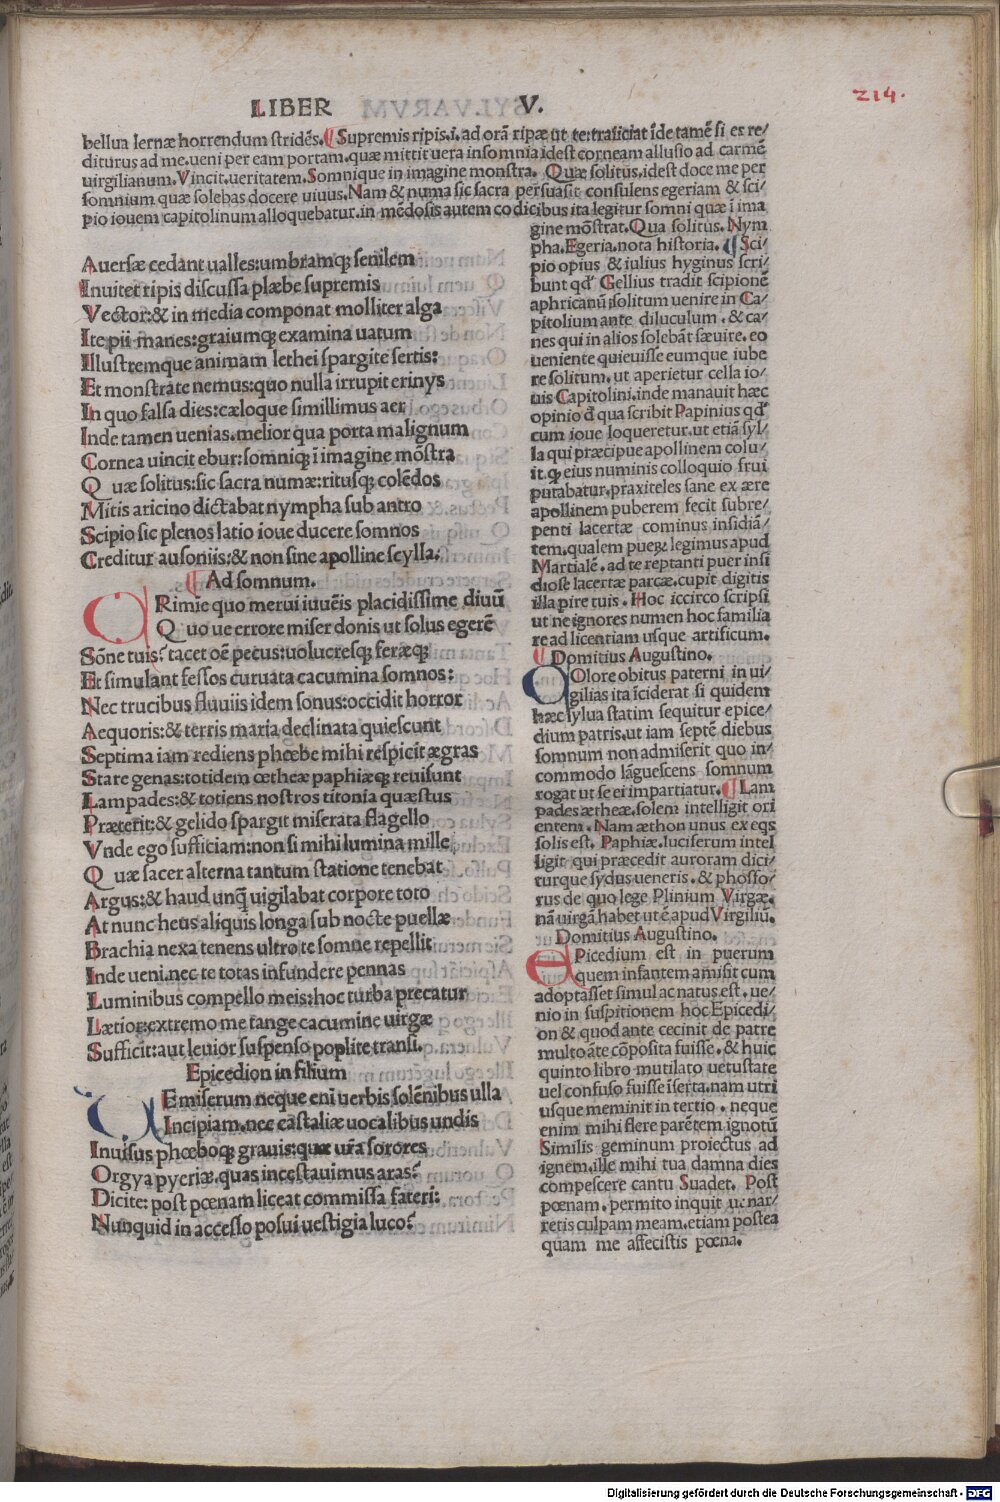 LIBER V.
214.
bellua lernæ horrendum stridẽs. ¶ Supremis ripis.i. ad orã ripæ ut te traiiciat ĩde tamẽ si es re/
diturus ad me. ueni per eam portam. quæ mittit uera insomnia idest corneam allusio ad carmẽ
uirgilianum. Vincit. ueritatem. Somnique in imagine monstra. Quæ solitus. idest doce me per
somnium quæ solebas docere uiuus. Nam & numa sic sacra persuasit consulens egeriam & sci/
pio iouem capitolinum alloquebatur. in mẽdosis autem codicibus ita legitur somni quæ ĩ ima
Auersæ cedant ualles: umbramq; senilem
Inuitet ripis discussa plæbe supremis
Vector: & in media componat molliter alga
Ite pii manes: graiumq; examina uatum
Illustremque animam lethei spargite sertis:
Et monstrate nemus: quo nulla irrupit erinys
In quo falsa dies: cæloque simillimus aer
Inde tamen uenias. melior qua porta malignum
Cornea uincit ebur: somniq; ĩ imagine mõstra
Quæ solitus: sic sacra numæ: ritusq; colẽdos
Mitis aricino dictabat nympha sub antro
Scipio sic plenos latio ioue ducere somnos
Creditur ausoniis: & non sine apolline scylla.
¶ Ad somnum.
CRimie quo merui iuuẽis placidissime diuũ
Quo ue errore miser donis ut solus egerẽ
Sõne tuis? tacet oẽ pecus: uolucresq; feræq;
Et simulant fessos curuata cacumina somnos:
Nec trucibus fluuiis idem sonus: occidit horror
Aequoris: & terris maria declinata quiescunt
Septima iam rediens phœbe mihi respicit ægras
Stare genas: totidem œtheæ paphiæq; reuisunt
Lampades: & totiens nostros titonia quæstus
Præterit: & gelido spargit miserata flagello
Vnde ego sufficiam: non si mihi lumina mille
Quæ sacer alterna tantum statione tenebat
Argus: & haud unq̃ uigilabat corpore toto
At nunc heus aliquis longa sub nocte puellæ
Brachia nexa tenens ultro te somne repellit
Inde ueni. nec te totas infundere pennas
Luminibus compello meis: hoc turba precatur
Lætior: extremo me tange cacumine uirgæ
Sufficit: aut leuior suspenso poplite transi.
Epicedion in filium
MEmiserum neque eni uerbis solẽnibus ulla
Incipiam. nec castaliæ uocalibus undis
Inuisus phœboq; grauis: quæ ura sorores
Orgya pyeriæ. quas incestauimus aras?
Dicite: post pœnam liceat commissa fateri:
Nunquid in accesso posui uestigia luco?
gine mõstrat. Qua solitus. Nym
pha. Egeria. nota historia. ¶ Sci/
pio opius & iulius hyginus scri/
bunt qd' Gellius tradit scipionẽ
aphricanũ solitum uenire in Ca/
pitolium ante diluculum. & ca/
nes qui in alios solebãt sæuire. eo
ueniente quieuisse eumque iube
re solitum. ut aperietur cella io/
uis Capitolini. inde manauit hæc
opinio đ qua scribit Papinius qd'
cum ioue loqueretur. ut etiã syl/
la qui præcipue apollinem colu/
it. q; eius numinis colloquio frui
putabatur. praxiteles sane ex ære
apollinem puberem fecit subre/
penti lacertæ cominus insidiã/
tem. qualem pueꝝ legimus apud
Martialẽ. ad te reptanti puer insi
diose lacertæ parcæ. cupit digitis
illa pire tuis. Hoc iccirco scripsi
ut ne ignores numen hoc familia
re ad licentiam usque artificum.
¶ Domitius Augustino.
DOlore obitus paterni in ui/
gilias ita ĩciderat si quidem
hæc sylua statim sequitur epice/
dium patris. ut iam septẽ diebus
somnum non admiserit quo in/
commodo lãguescens somnum
rogat ut se ei impartiatur. ¶ Lam
pades ætheæ. solem intelligit ori
entem. Nam æthon unus ex eqs
solis est. Paphiæ. luciferum intel
ligit qui præcedit auroram dici/
turque sydus ueneris. & phosfo/
rus de quo lege Plinium Virgæ.
nã uirgã habet ut ẽ apud Virgiliũ.
Domitius Augustino.
EPicedium est in puerum
quem infantem amisit cum
adoptasset simul ac natus est. ue/
nio in suspitionem hoc Epicedi/
on & quod ante cecinit de patre
multo ãte cõposita fuisse. & huic
quinto libro mutilato uetustate
uel confuso fuisse ĩserta. nam utri
usque meminit in tertio. neque
enim mihi flere parẽtem ignotũ
Similis geminum proiectus ad
ignem. ille mihi tua damna dies
compescere cantu Suadet. Post
pœnam. permito inquit ut nar/
retis culpam meam. etiam postea
quam me affecistis pœna.
Digitalisierung gefördert durch die Deutsche Forschungsgemeinschaft - DFG